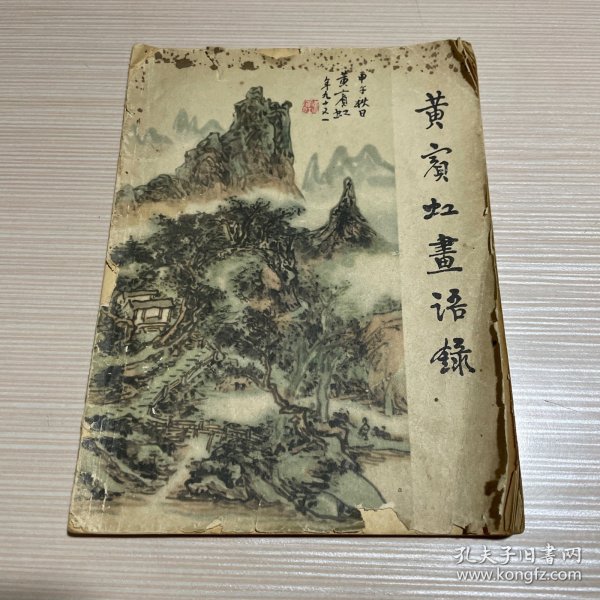 黄賓虹畫语錄
秋日
黄賓虹
年九十又一
孔夫子旧书网
www.kongfz.com